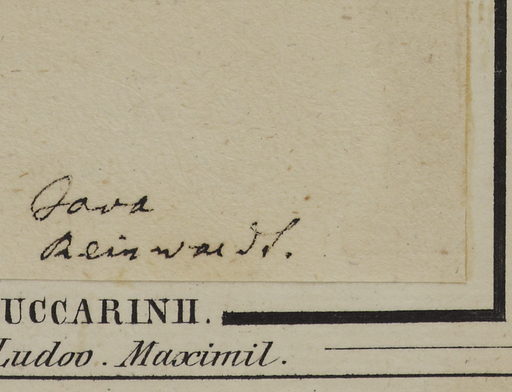 Java
Reinwardt.
UCCARINII.
Ludov. Maximil.